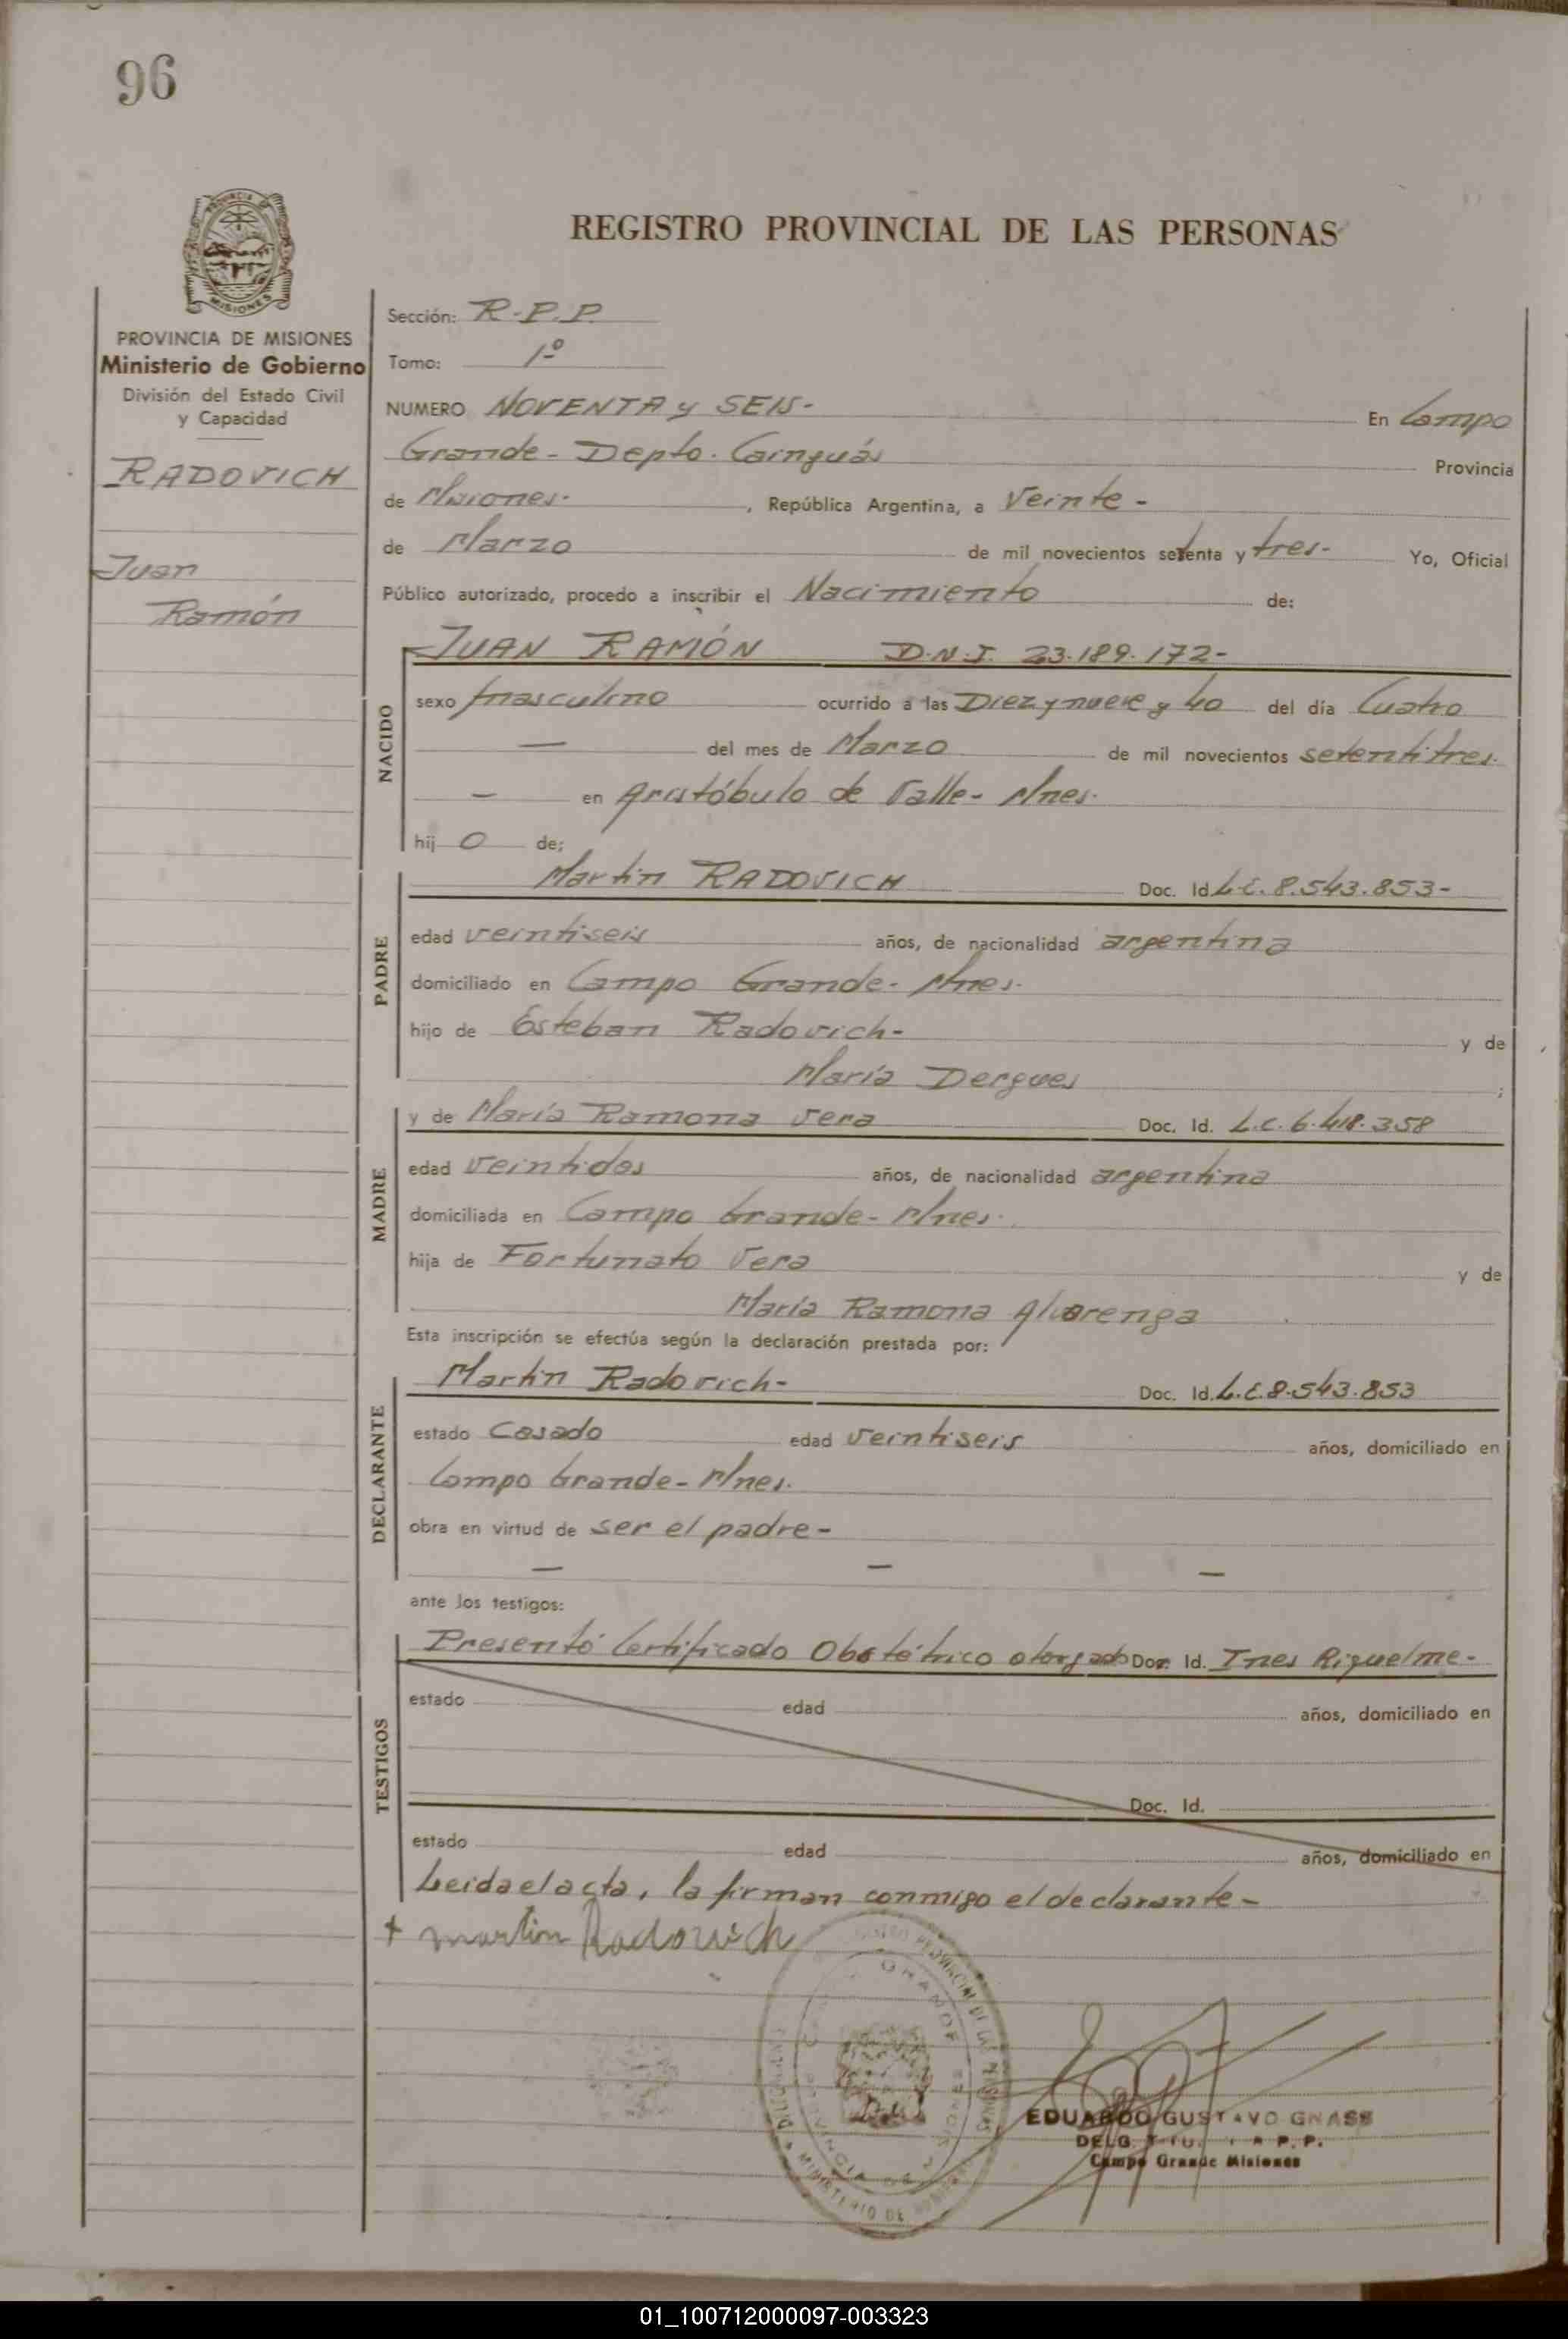 96
PROVINCIA DE
MISIONES
REGISTRO PROVINCIAL DE LAS PERSONAS
PROVINCIA DE MISIONES
Ministerio de Gobierno
División del Estado Civil
y Capacidad
RADOVICH
Juan
Ramón
Sección: R.P.P.
Tomo: 1º
NUMERO NOVENTA y SEIS- En Campo
Grande- Depto. Cainguás Provincia
de Misiones- , República Argentina, a Veinte-
de Marzo de mil novecientos setenta y tres- Yo, Oficial
Público autorizado, procedo a inscribir el Nacimiento de:
NACIDO
JUAN RAMÓN D.N.I. 23.189.172-
sexo masculino ocurrido a las Diez y nueve y 40 del día Cuatro
— del mes de Marzo de mil novecientos setentitres-
— en Aristóbulo de Valle- Mnes.
hij o de:
PADRE
Martin RADOVICH Doc. Id. L.E. 8.543.853-
edad veintiseis años, de nacionalidad argentina
domiciliado en Campo Grande- Mnes.
hijo de Esteban Radovich- y de
María Dergues ;
MADRE
y de María Ramona Vera Doc. Id. L.C. 6.418.358
edad veintidos años, de nacionalidad argentina
domiciliada en Campo Grande- Mnes.
hija de Fortunato Vera y de
María Ramona Alvarenga
Esta inscripción se efectúa según la declaración prestada por:
DECLARANTE
Martin Radovich- Doc. Id. L.E. 8.543.853
estado Casado edad veintiseis años, domiciliado en
Campo Grande- Mnes.
obra en virtud de ser el padre-
— — —
ante los testigos:
TESTIGOS
Presentó Certificado Obstétrico otorgado Doc. Id. Ines Riquelme-
estado edad años, domiciliado en
Doc. Id.
estado edad años, domiciliado en
Leida el acta, la firman conmigo el declarante-
+ martin Radovich
PROVINCIAL DE LAS PERSONAS
GRANDE
PROVINCIA DE
MINISTERIO DE
EDUARDO GUSTAVO GNASS
DELG. P.P.
Campo Grande Misiones
01_100712000097-003323